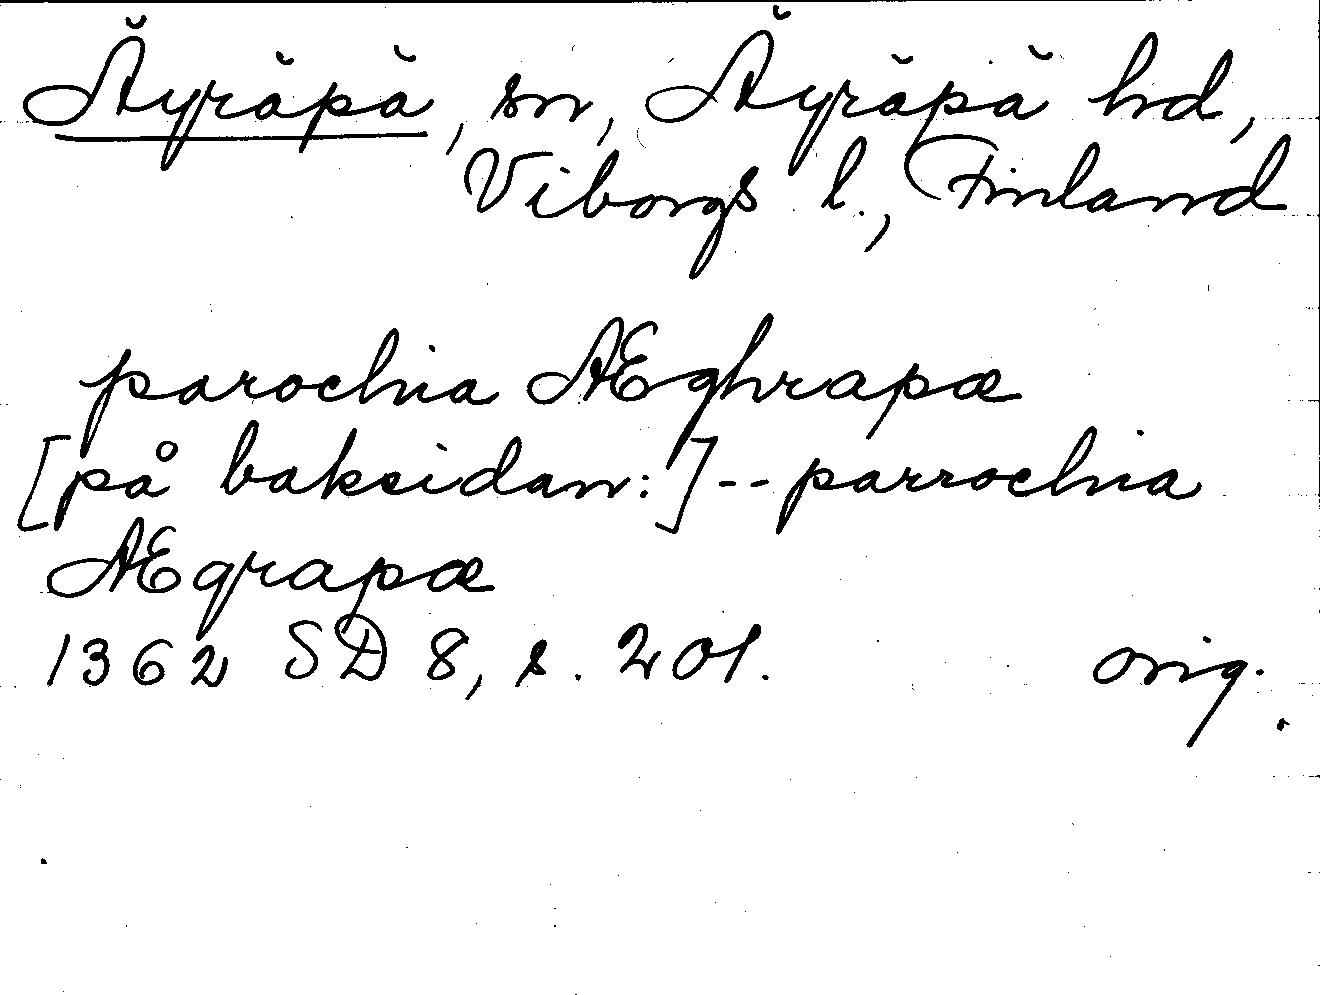 Äyräpä, sn, Äyräpä hd,
Viborgs l., Finland
parochia Æghrapæ
[på baksidan:] -- parrochia
Ægrapæ
1362 SD 8, s. 201. orig.